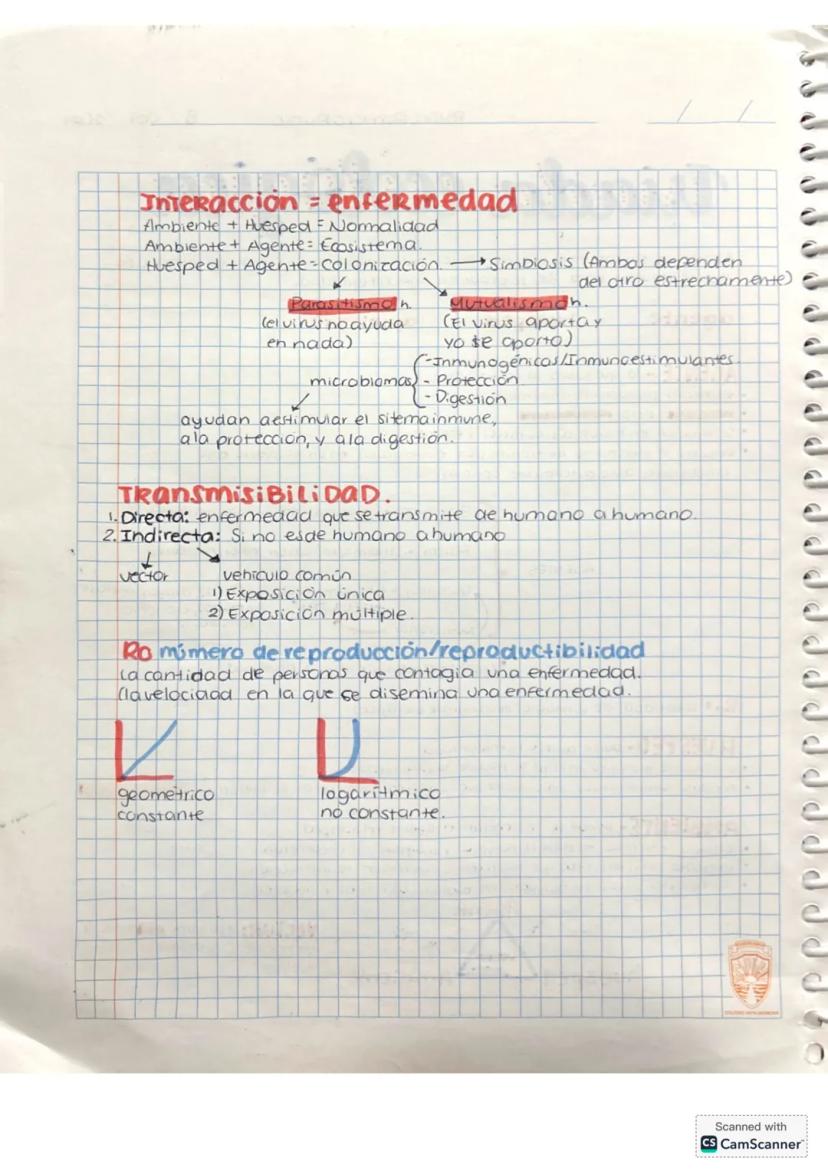 / /
Interacción = enfermedad
Ambiente + Huesped = Normalidad
Ambiente + Agente = Ecosistema.
Huesped + Agente = Colonización. → Simbiosis (Ambos dependen
del otro estrechamente)
Parasitismo h. Mutualismo h.
(el virus no ayuda (El virus aporta y
en nada) yo te aporto)
-Inmunogénicos/Inmunoestimulantes
microbiomas - Protección
- Digestión
ayudan a estimular el sitema inmune,
a la protección, y a la digestión.
Transmisibilidad.
1. Directa: enfermedad que se transmite de humano a humano.
2. Indirecta: Si no es de humano a humano
vector vehículo común
1) Exposición única
2) Exposición múltiple.
Ro número de reproducción/reproductibilidad
La cantidad de personas que contagia una enfermedad.
(la velocidad en la que se disemina una enfermedad.
geometrico logarítmico
constante no constante.
Scanned with
CS CamScanner